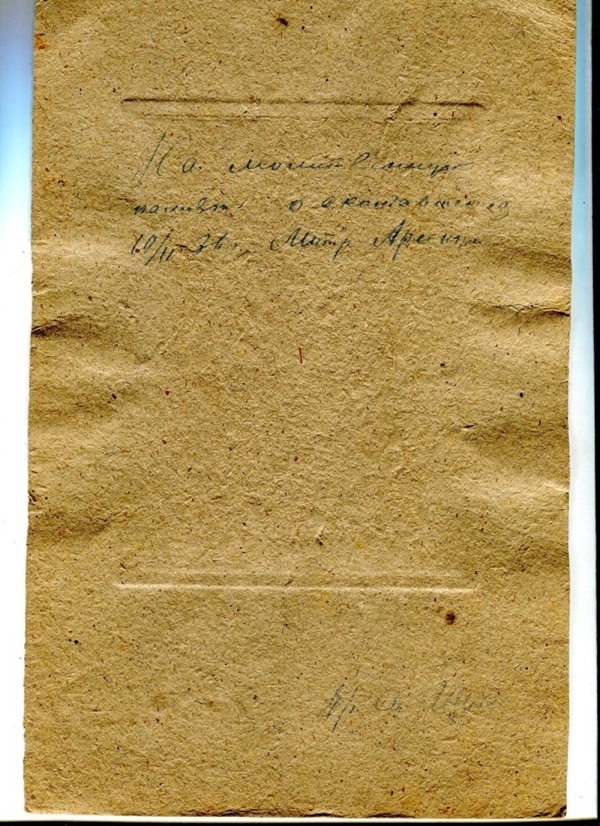 На молитвенную
память о скончавшемся
10/II 36г. Митр Арсении